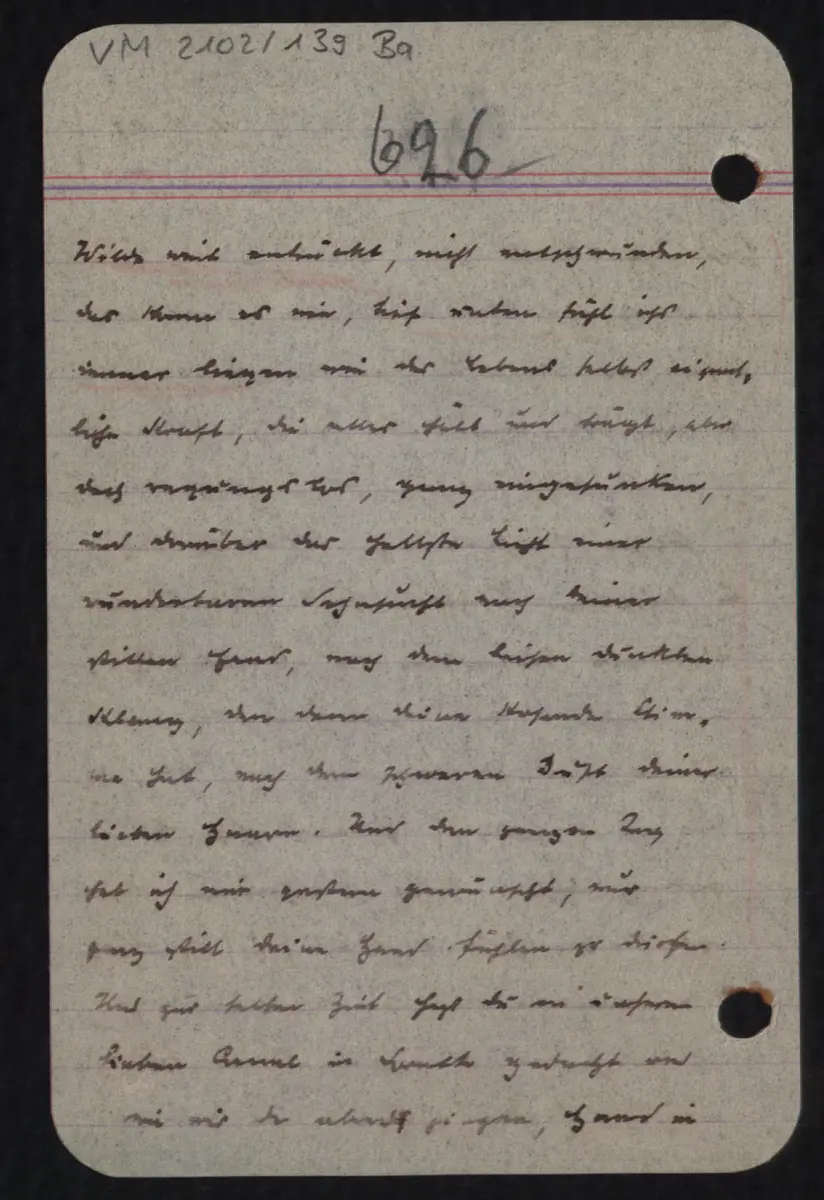 VM 2102/139 Ba
626
Wilde weit entrückt, nicht entschwunden,
das kann es nie, tief unten fühl ichs
immer liegen wie des Lebens selbst eigent-
liche Kraft, die alles hält und trägt, aber
doch regungslos, ganz eingesunken,
und darüber das hellste Licht einer
wunderbaren Sehnsucht nach deiner
stillen Hand, nach dem leisen dunklen
Klang, den dann deine kosende Stim-
me hat, nach dem schweren Duft deiner
lieben Haare. Und den ganzen Tag
hab ich mir gestern gewünscht, nur
ganz still deine Hand fühlen zu dürfen.
Und zur selben Zeit hast du an unsern
lieben Canal in gedacht und
wie wir da abends gingen, Hand in